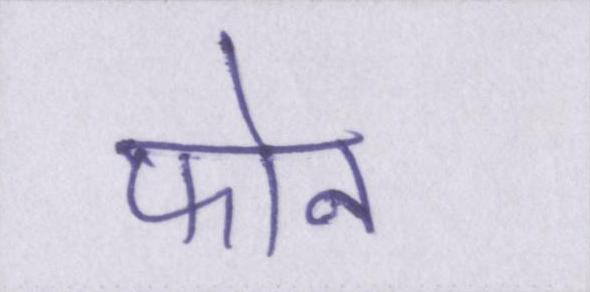 फोन